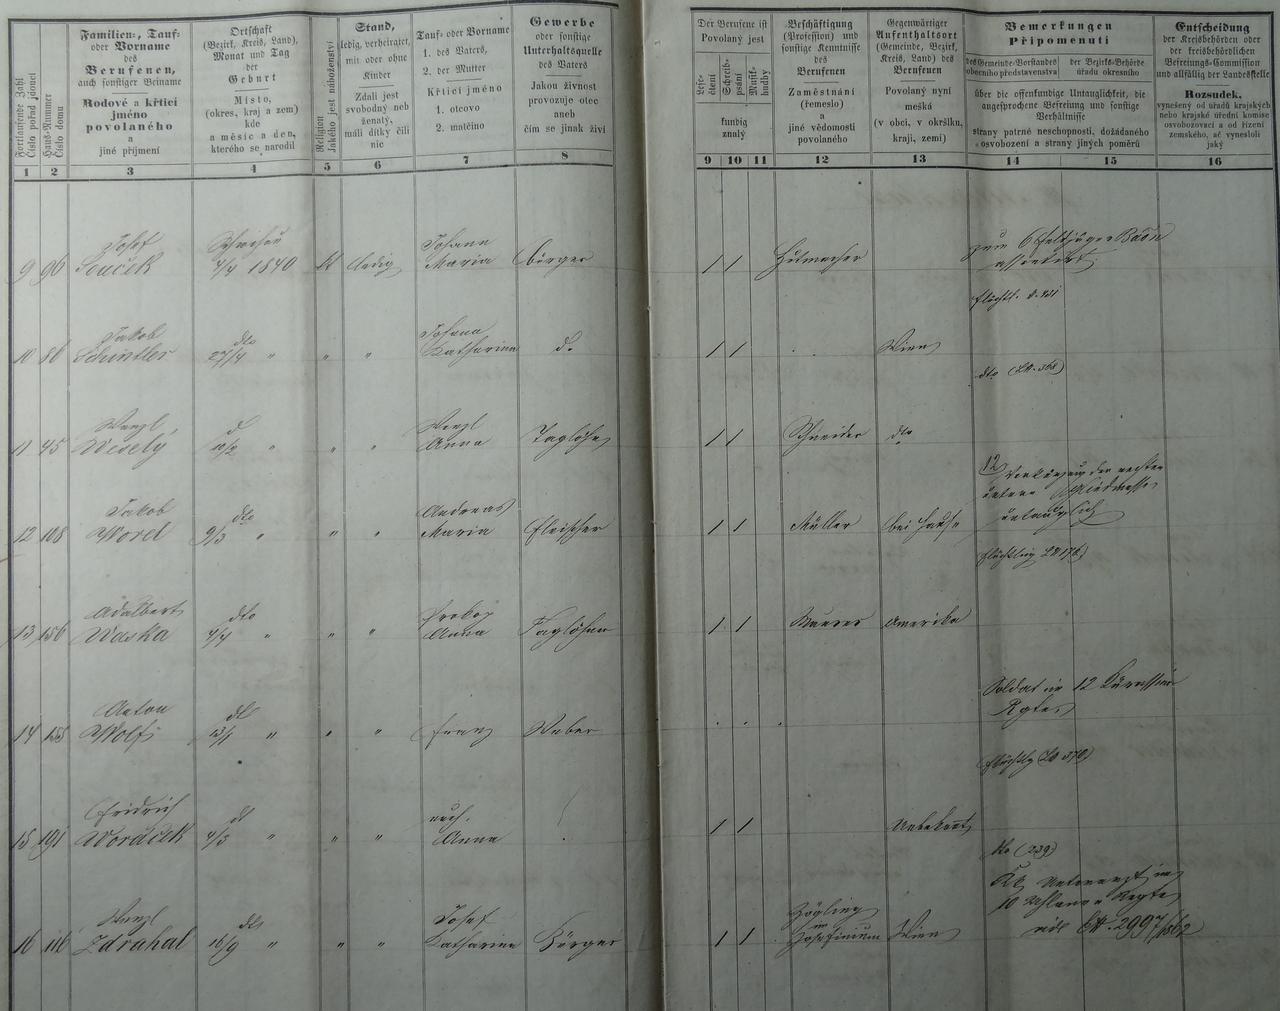 Fortlaufende Zahl
Číslo pořad jdoucí
Haus-Nummer
Číslo domu
Familien-, Tauf-
oder Vorname
des
Berufenen,
auch sonstiger Beiname
Rodové a křticí
jméno
povolaného
a
jiné příjmení
Ortschaft
(Bezirk, Kreis, Land),
Monat und Tag
der
Geburt
Místo,
(okres, kraj a zem)
kde
a měsíc a den,
kterého se narodil
Religion
Jakého jest náboženství
Stand,
ledig, verheiratet,
mit oder ohne
Kinder
Zdali jest
svobodný neb
ženatý,
máli dítky čili
nic
Tauf- oder Vorname
1. des Vaters,
2. der Mutter
Křticí jméno
1. otcovo
2. matčino
Gewerbe
oder sonstige
Unterhaltsquelle
des Vaters
Jakou živnost
provozuje otec
aneb
čím se jinak živí
Der Berufene ist
Povolaný jest
Lese-
čtení
Schreib-
psáni
Musik-
hudby
kundig
znalý
Beschäftigung
(Profession) und
sonstige Kenntnisse
des
Berufenen
Zaměstnání
(řemeslo)
a
jiné vědomosti
povolaného
Gegenwärtiger
Aufenthaltsort
(Gemeinde, Bezirk,
Kreis, Land) des
Berufenen
Povolaný nyní
mešká
(v obci, v okršlku,
kraji, zemi)
Bemerkungen
Připomenutí
des Gemeinde-Vorstandes
obecního představenstva
der Bezirks-Behörde
úřadu okresního
über die offenkundige Untauglichkeit, die
angesprochene Befreiung und sonstige
Verhältnisse
strany patrné neschopnosti, dožádaného
osvobození a strany jiných poměrů
Entscheidung
der Kreisbehörden oder
der kreisbehördlichen
Befreiungs-Commission
und allfällig der Landesstelle
Rozsudek,
vynešený od úřadů krajských
nebo krajské úřední komise
osvobozovací a od řízení
zemského, ač vynesloli
jaký
1 2 3 4 5 6 7 8 9 10 11 12 13 14 15 16
Josef Johann zum 6 Feldjäger Baon
9 96 Souček 4/4 1840 ledig Maria Bürger 1 1 Hutmacher assentirt
Jakob dto Johann
10 86 Schintler 27/4 " " " Katharina d. 1 1 Wien
dto
Wenzl d Wenzl
11 45 Veselý " " " Anna Taglöhn 1 1 Schneider dto
12 Verkürzung der rechten
untern
Jakob dto Andreas untauglich
12 108 Worel 9/3 " " " Maria Fleischer 1 1 Müller bei Hause
Adalbert dto Prokop
13 156 Waska 4/4 " " " Anna Taglöhner 1 1 Maurer Amerika
Soldat im 12 Kürassier
Anton dt Rgte
14 155 Wolf " " " Franz Weber
Fridrich dt
15 191 Woráček 4/3 " " " Anna 1 1 Unbekannt
dto (239)
Kk Unterarzt im
10 Uhlanen Regte
Wenzl dto Josef Zögling im
16 116 Zdrahal 16/9 " " " Katharina Bürger 1 1 Josefinum Wien vide 2997/862